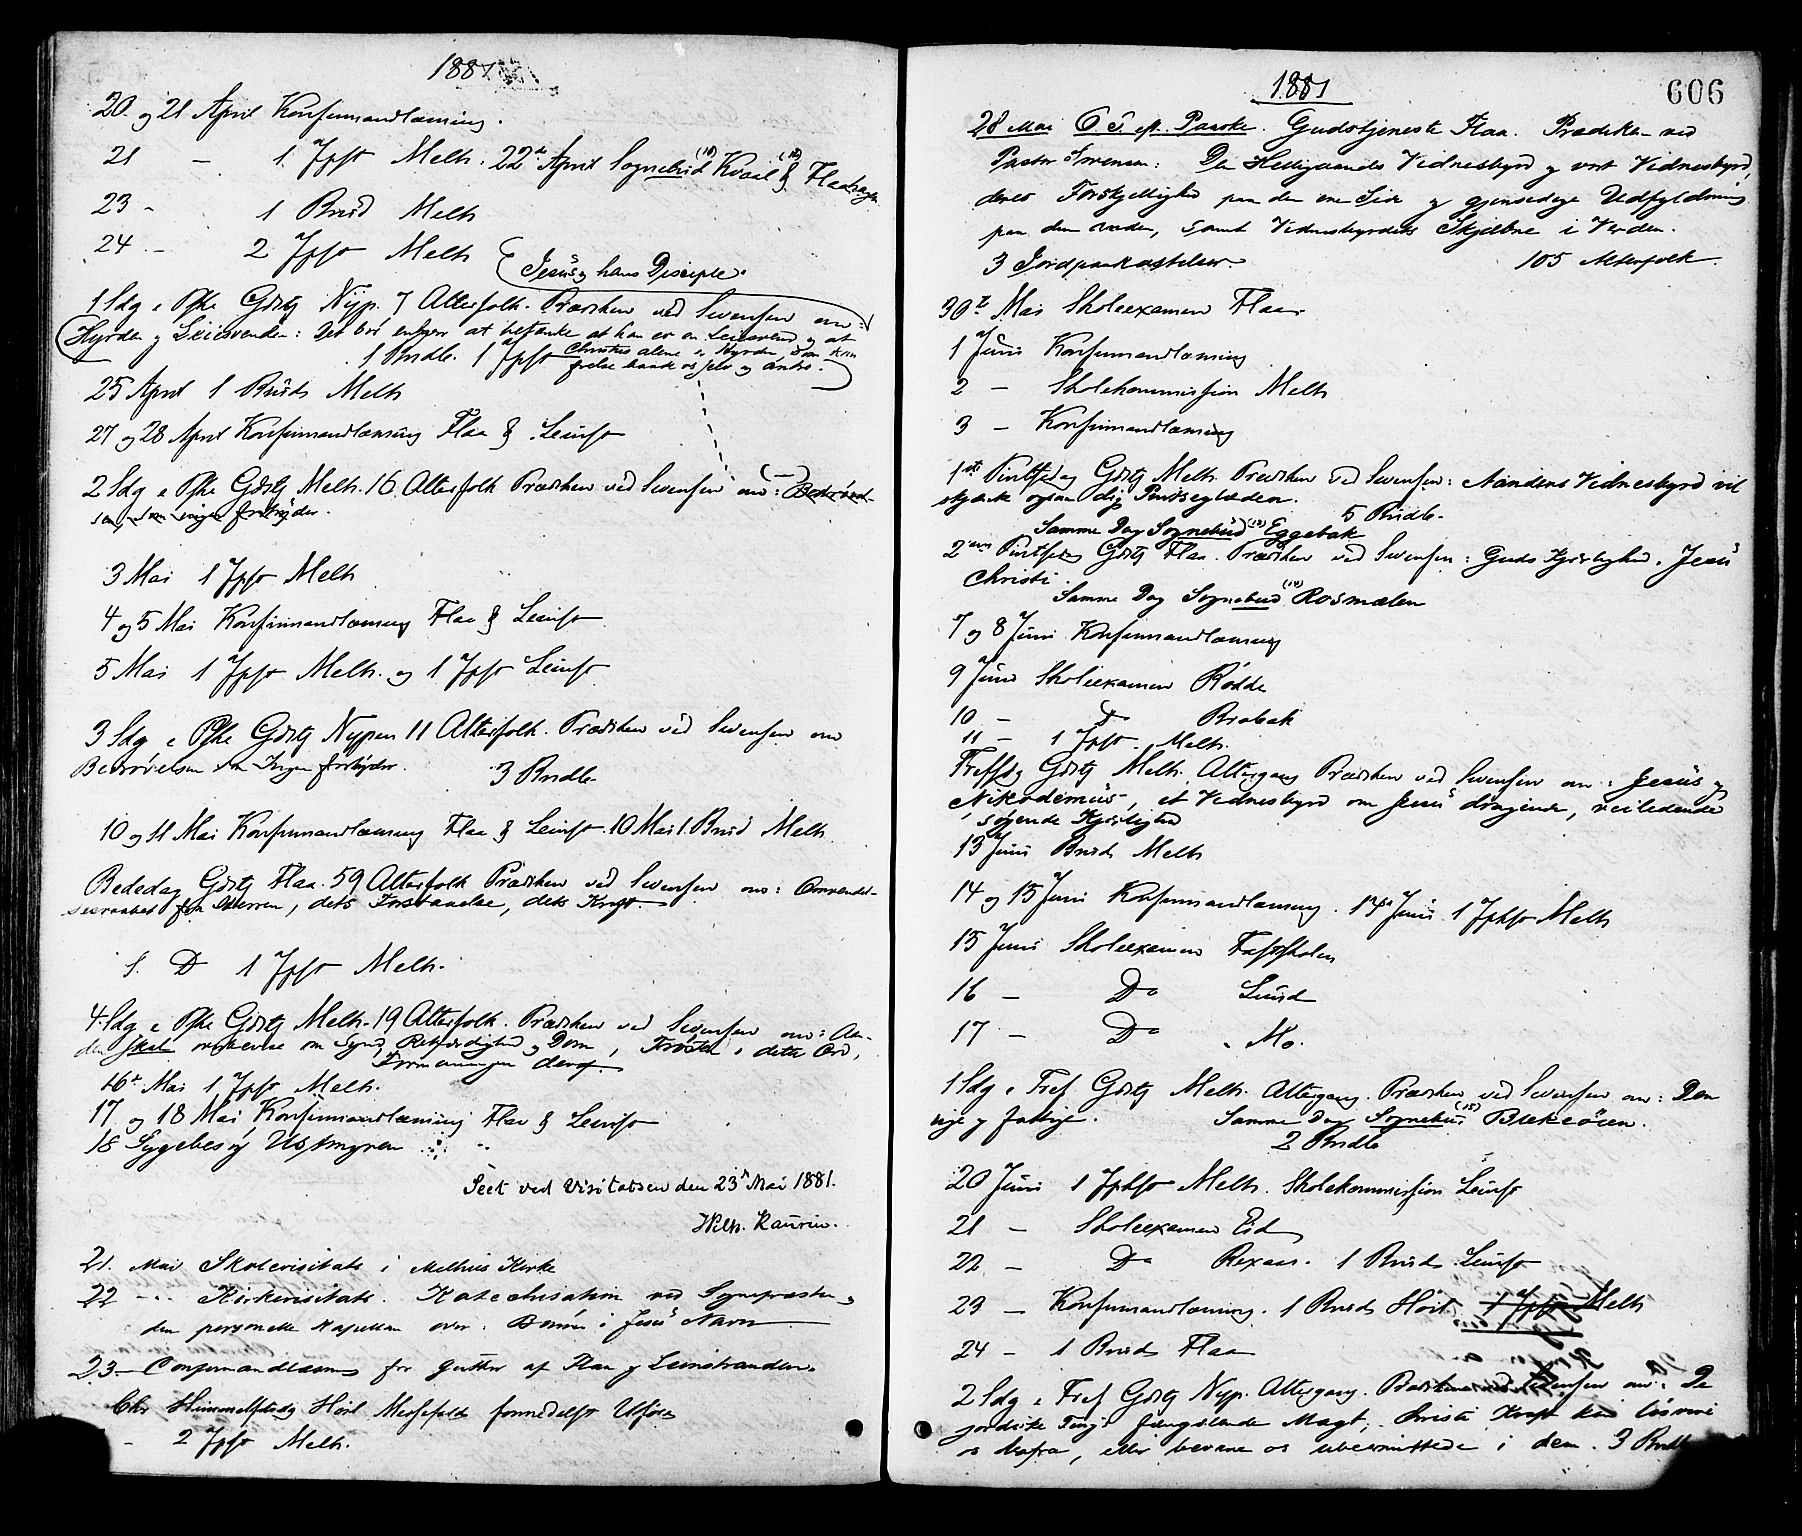 1881
20 og 21 April Konfirmandlæsning.
21 - 1 Jpfst Melh. 22de April Sognebud (10) Kvaal & (10) Flaa
23 - 1 Brud Melh
24 - 2 Jpfst Melh
(Jesus og hans Disciple.
1 Sdg e Pske Gdstj Nyp. 7 Alterfolk. Præken ved Svensen om:
Hyrden og Leiesvenden: Det bør enhver at betænke at han er en Leiesvend og at
1 Brudv. 1 Jpfst Christus alene er Hyrden, som kan
frelse baade os selv og andre.
25 April 1 Brud Melh
27 og 28 April Konfirmandlæsning Flaa & Leinst
2 Sdg e Pske Gdstj Melh. 16 Alterfolk Præken ved Svensen om: Bedrøvel-
sen, som ingen fortryder.
3 Mai 1 Jpfst Melh
4 og 5 Mai Konfirmandlæsning Flaa & Leinst
5 Mai 1 Jpfst Melh. og 1 Jpfst Leinst
3 Sdg e Pske Gdstj Nypen 11 Alterfolk. Præken ved Svensen om
Bedrøvelsen som Ingen fortryder. 3 Brudv.
10 og 11 Mai Konfirmandlæsning Flaa & Leinst. 10 Mai 1 Brud Melh
Bededag Gdstj Flaa. 59 Alterfolk Præken ved Svensen om: Omvendel-
sesraabet fra Herren, dets Forstaaelse, dets Kraft.
S. D 1 Jpfst Melh.
4. Sdg e Pske Gdstj Melh. 19 Alterfolk. Præken ved Svensen om: Aan-
den skal overbevise om Synd, Retfærdighed og Dom, Trøsten i dette Ord,
Formaningen deraf
16de Mai 1 Jpfst Melh.
17 og 18 Mai Konfirmandlæsning Flaa & Leinst
18 Sygebesøg Ustmyren
Seet ved Visitatsen den 23de Mai 1881.
Wilh. Kaurin.
21. Mai Skolevisitats i Melhus Kirke
22 - Kirkevisitats. Katechisation ved Sognepræsten og
den personelle Kapellan over: Bønnen i Jesu Navn
23 - Confirmandlæsn for Gutter af Flaa og Leinstranden
Chr Himmelfdg Höil Messefald formedelst Uføre
- 2 Jpfst Melh.
1881
606
28 Mai 6. S. e. Paaske. Gudstjeneste Flaa. Prædiken ved
Pastor Svensen: Den Helligaands Vidnesbyrd og vort Vidnesbyrd,
deres Forskjellighed paa den ene Side og gjensidige Udfyldning
paa den anden, samt Vidnesbyrdets Skjæbne i Verden.
3 Jordpaakastelser. 105 Alterfolk.
30te Mai Skoleexamen Flaa
1 Juni Konfirmandlæsning
2 - Skolekommission Melh
3 - Konfirmandlæsning
1ste Pintsedag Gdstj Melh. Præken ved Svensen: Aandens Vidnesbyrd vil
skjænke ogsaa dig Pintseglæden. 5 Brudv.
Samme Dag Sognebud (10) Eggebak
2den Pintsedag Gdstj Flaa. Præken ved Svensen: Guds Kjærlighed i Jesu
Christi.
Samme Dag Sognebud (14) Rosmælen
7 og 8 Juni Konfirmandlæsning
9 Juni Skoleexamen Rödde
10 - Do Brubak
11 - 1 Jpfst Melh.
Trefsdg Gdstj Melh. Altergang Præken ved Svensen om: Jesus og
Nikodemus, et Vidnesbyrd om Jesu dragende, veiledende
søgende Kjærlighed
13 Juni Brud Melh
14 og 15 Juni Konfirmandlæsning. 13de Juni 1 Jpfst Melh
15 Juni Skoleexamen Fastskolen
16 - Do Lund
17 - Do Mo.
1 Sdg e Tref Gdstj Melh. Altergang. Præken ved Svensen om: Den
rige og fattige. Samme Dag Sognebud (15) Brekkeöien.
2 Brudv.
20 Juni 1 Jpfst Melh. Skolekommission Leinst
21 - Skoleexamen Eid
22 - Do Rexaas. 1 Brud Leinst
23 - Konfirmandlæsning. 1 Brud Höil. 1 Jpfst Melh
24 - 1 Brud Flaa
2 Sdg e Tref Gdstj Nyp. Altergang. Præken ved Svensen om: De
jordiske Tings fængslende Magt; Christi Kraft kan løsrive
os derfra, eller bevare os ubesmittede i dem. 3 Brudv.